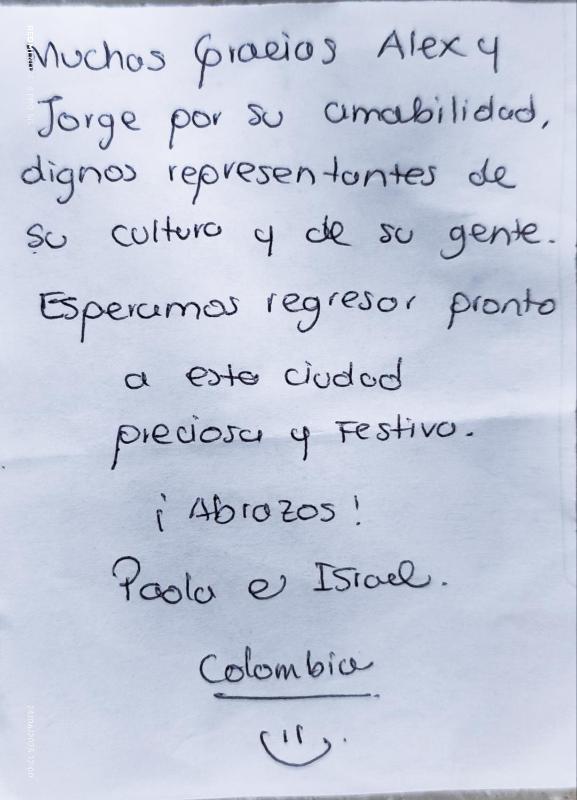 Muchas Gracias Alex y
Jorge por su amabilidad,
dignos representantes de
su cultura y de su gente.
Esperamos regresar pronto
a esta ciudad
preciosa y Festiva.
¡Abrazos!
Paola e Israel.
Colombia